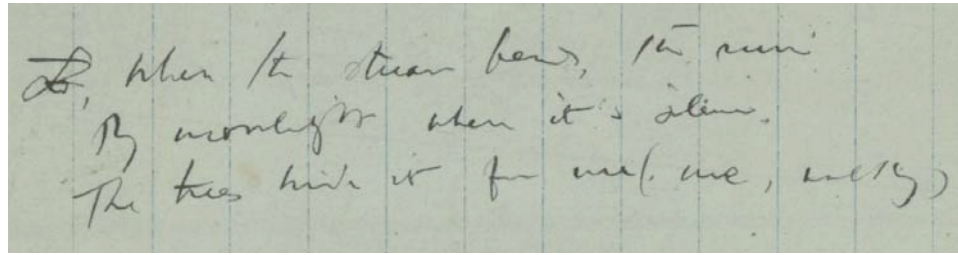 , when the stream bends, the
By moonlight when it's
The trees hide it from me (. me, )